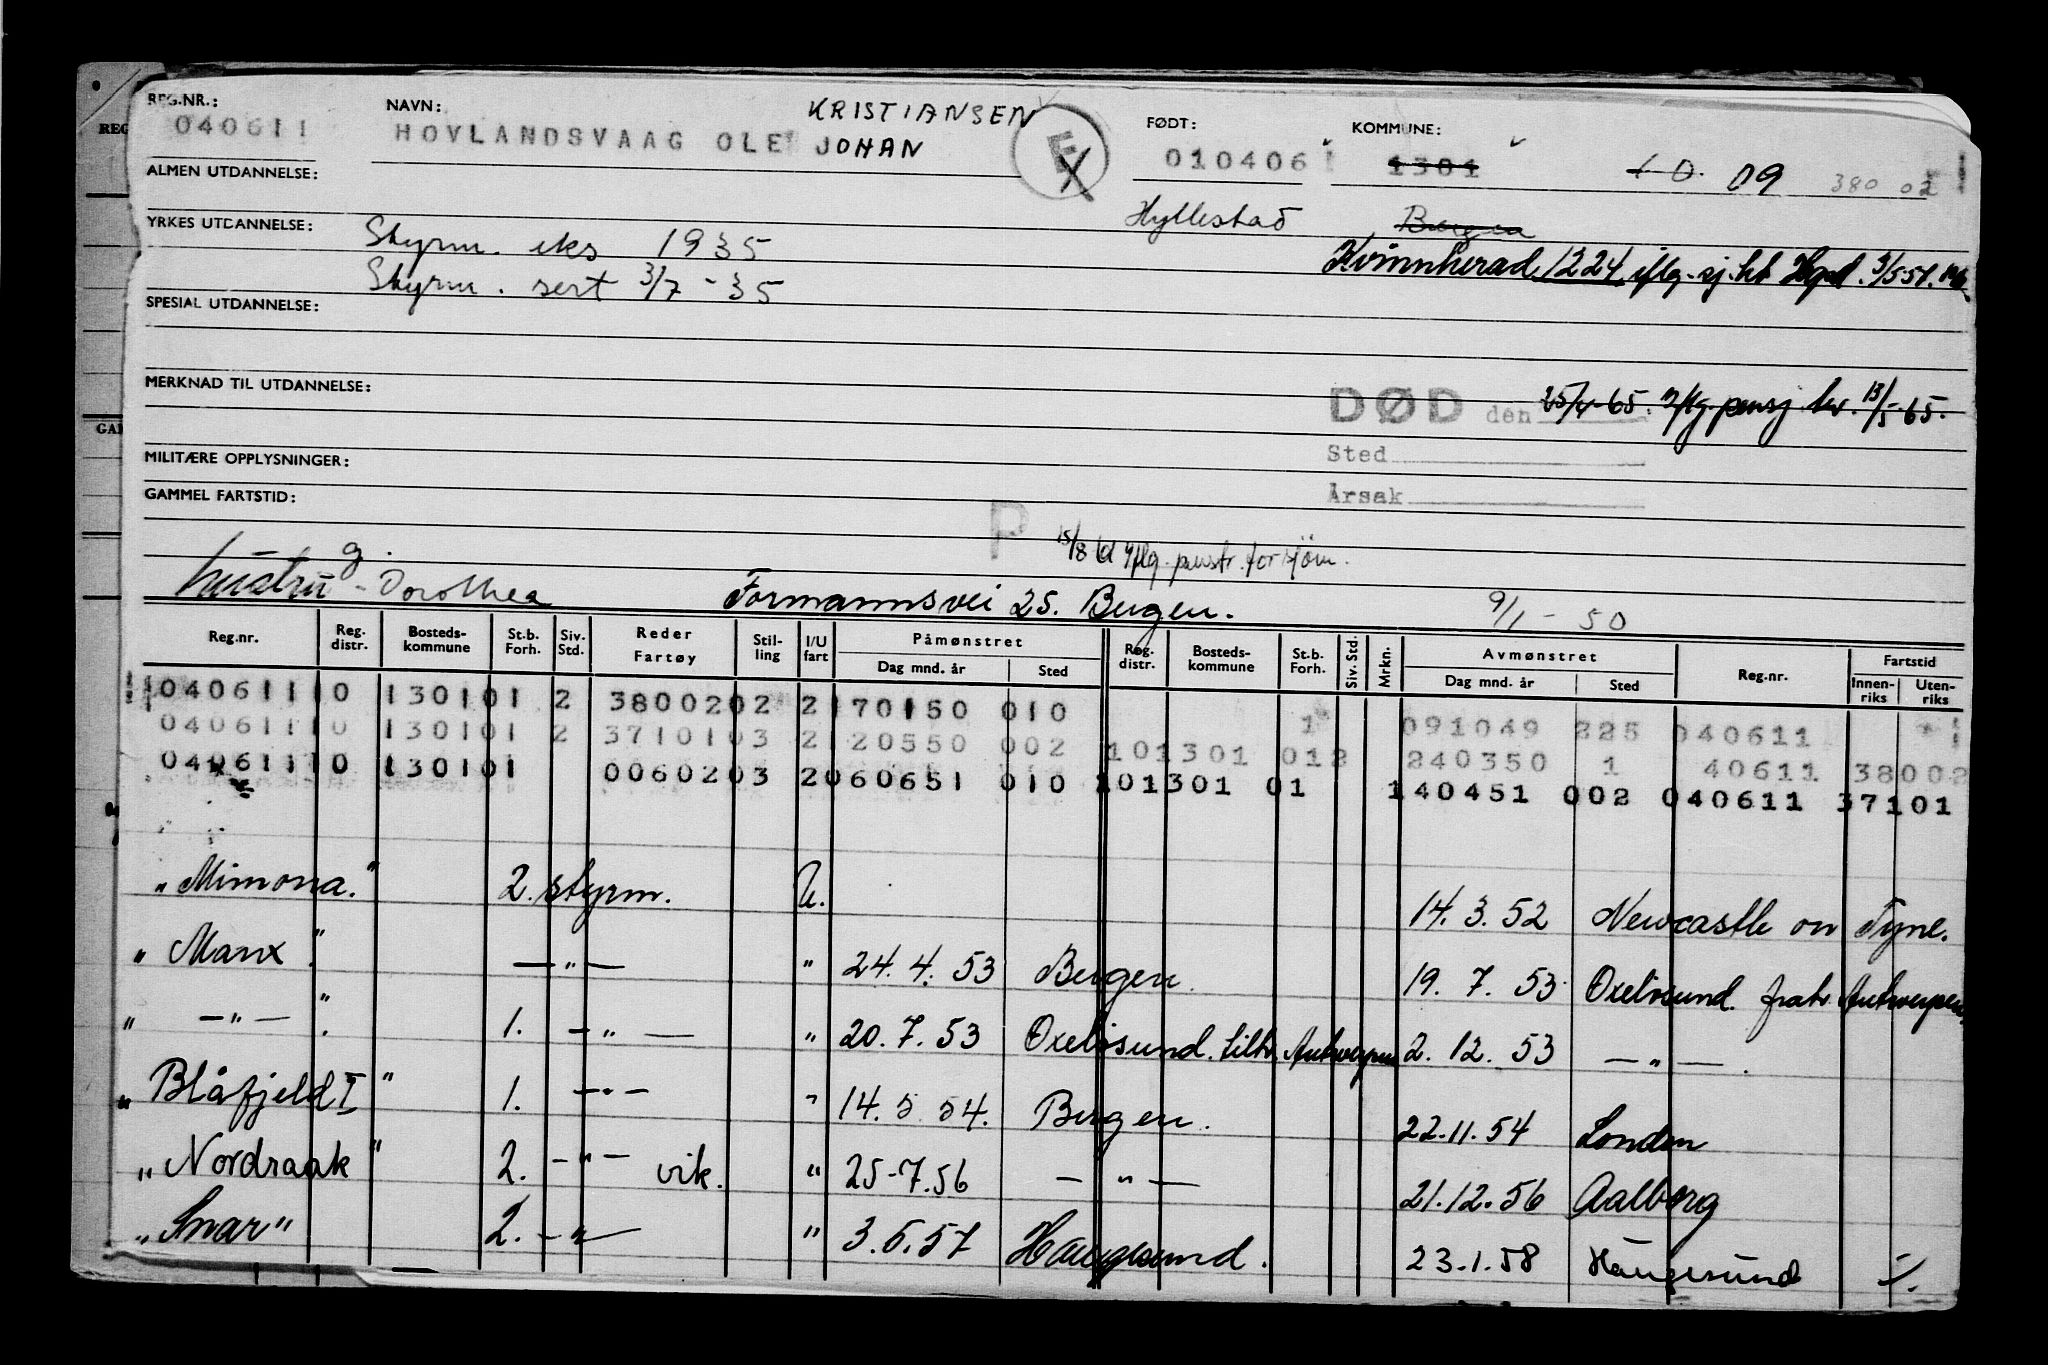 REG.NR.: NAVN: KRISTIANSEN FØDT: KOMMUNE:
040611 HOVLANDSVAAG OLE JOHAN E 010406 1301 10. 09 380 02
ALMEN UTDANNELSE:
Hyllestad Bergen
YRKES UTDANNELSE: Styrm. eks 1935
Kvinnherad 1224 iflg. sj.
Styrm. sert 3/7 - 35
SPESIAL UTDANNELSE:
MERKNAD TIL UTDANNELSE:
DØD den 25/4-65. iflg. pensj. 13/5-65.
Sted
Årsak
MILITÆRE OPPLYSNINGER:
GAMMEL FARTSTID:
P 15/8 61 iflg. penstr. for sjöm.
g.
hustru - Dorothea Formannsvei 25. Bergen. 9/1 - 50
Reg.nr. Reg. distr. Bosteds- kommune St.b. Forh. Siv. Std. Reder Fartøy Stil- ling I/U fart Påmønstret Dag mnd. år Sted Reg. distr. Bosteds- kommune St.b. Forh. Siv. Std. Mrkn. Avmønstret Dag mnd. år Sted Reg.nr. Fartstid Innen- riks Uten- riks
040611 10 1301 01 2 38002 02 2 170150 010 1 091049 225 040611
040611 10 1301 01 2 37101 03 2 120550 002 10 1301 01 2 240350 1 40611 38002
040611 10 1301 01 00602 03 2 060651 010 10 1301 01 140451 002 040611 37101
"Mimona." 2. styrm. U. 14. 3. 52 Newcastle on Tyne.
"Manx". — " — " 24. 4. 53 Bergen. 19. 7. 53 Oxelösund. fratr. Antwerpen.
" — " — ". 1. — " — " 20. 7. 53 Oxelösund. tiltr. Antwerpen 2. 12. 53 — " — .
"Blåfjeld I" 1. — " — " 14. 5. 54. Bergen. 22. 11. 54 London
"Nordraak" 2. — " — vik. " 25-7.56 — " — 21.12.56 Aalborg
"Snar" 2. — " — " 3.6.57 Haugesund. 23.1.58 Haugesund